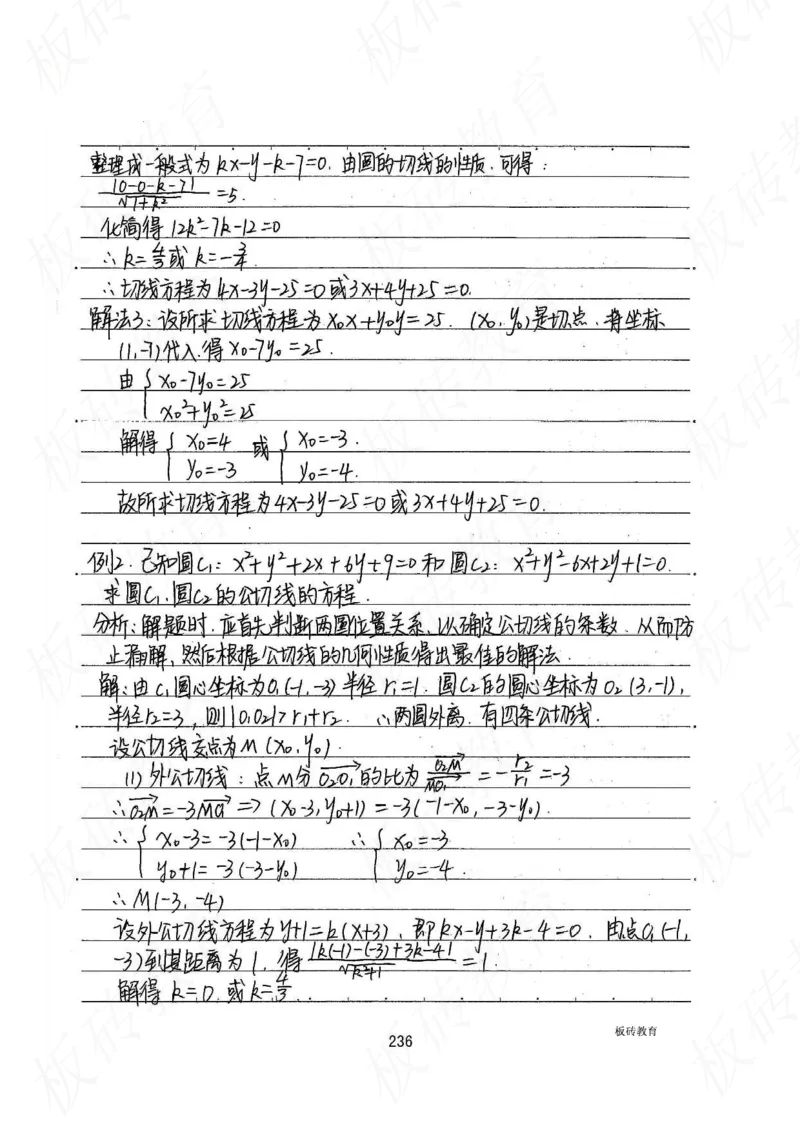 整理成一般式为kx-y-k-7=0. 由圆的切线的性质.可得:
|0-0-k-7|/√1+k² =5.
化简得 12k²-7k-12=0
∴k=4/3或 k=-3/4.
∴切线方程为4x-3y-25=0或3x+4y+25=0.
解法3:设所求切线方程为x₀x+y₀y=25. (x₀, y₀)是切点.将坐标
(1,-7)代入.得 x₀-7y₀=25.
由{x₀-7y₀=25
x₀²+y₀²=25
解得{x₀=4 或{x₀=-3.
y₀=-3 y₀=-4.
故所求切线方程为4x-3y-25=0或3x+4y+25=0.
例2.已知圆C₁: x²+y²+2x+6y+9=0和圆C₂: x²+y²-6x+2y+1=0.
求圆C₁.圆C₂的公切线的方程.
分析:解题时.应首先判断两圆位置关系、以确定公切线的条数.从而防
止漏解、然后根据公切线的几何性质得出最佳的解法.
解:由C₁圆心坐标为O₁(-1,-3)半径r₁=1. 圆C₂的圆心坐标为O₂(3,-1),
半径r₂=3,则|O₁O₂|>r₁+r₂. ∴两圆外离.有四条公切线.
设公切线交点为M(x₀,y₀).
(1)外公切线:点M分O₂O₁→的比为 O₂M→/MO₁→ =-r₂/r₁=-3
∴O₂M→=-3MO₁→ => (x₀-3,y₀+1) = -3(-1-x₀, -3-y₀).
∴{x₀-3=-3(-1-x₀) ∴{x₀=-3
y₀+1=-3(-3-y₀) y₀=-4.
∴M(-3,-4)
设外公切线方程为y+1=k(x+3).即kx-y+3k-4=0. 由点O₁(-1,
-3)到其距离为1.得|k(-1)-(-3)+3k-4|/√k²+1 =1.
解得k=0.或k=4/3.
236
板砖教育